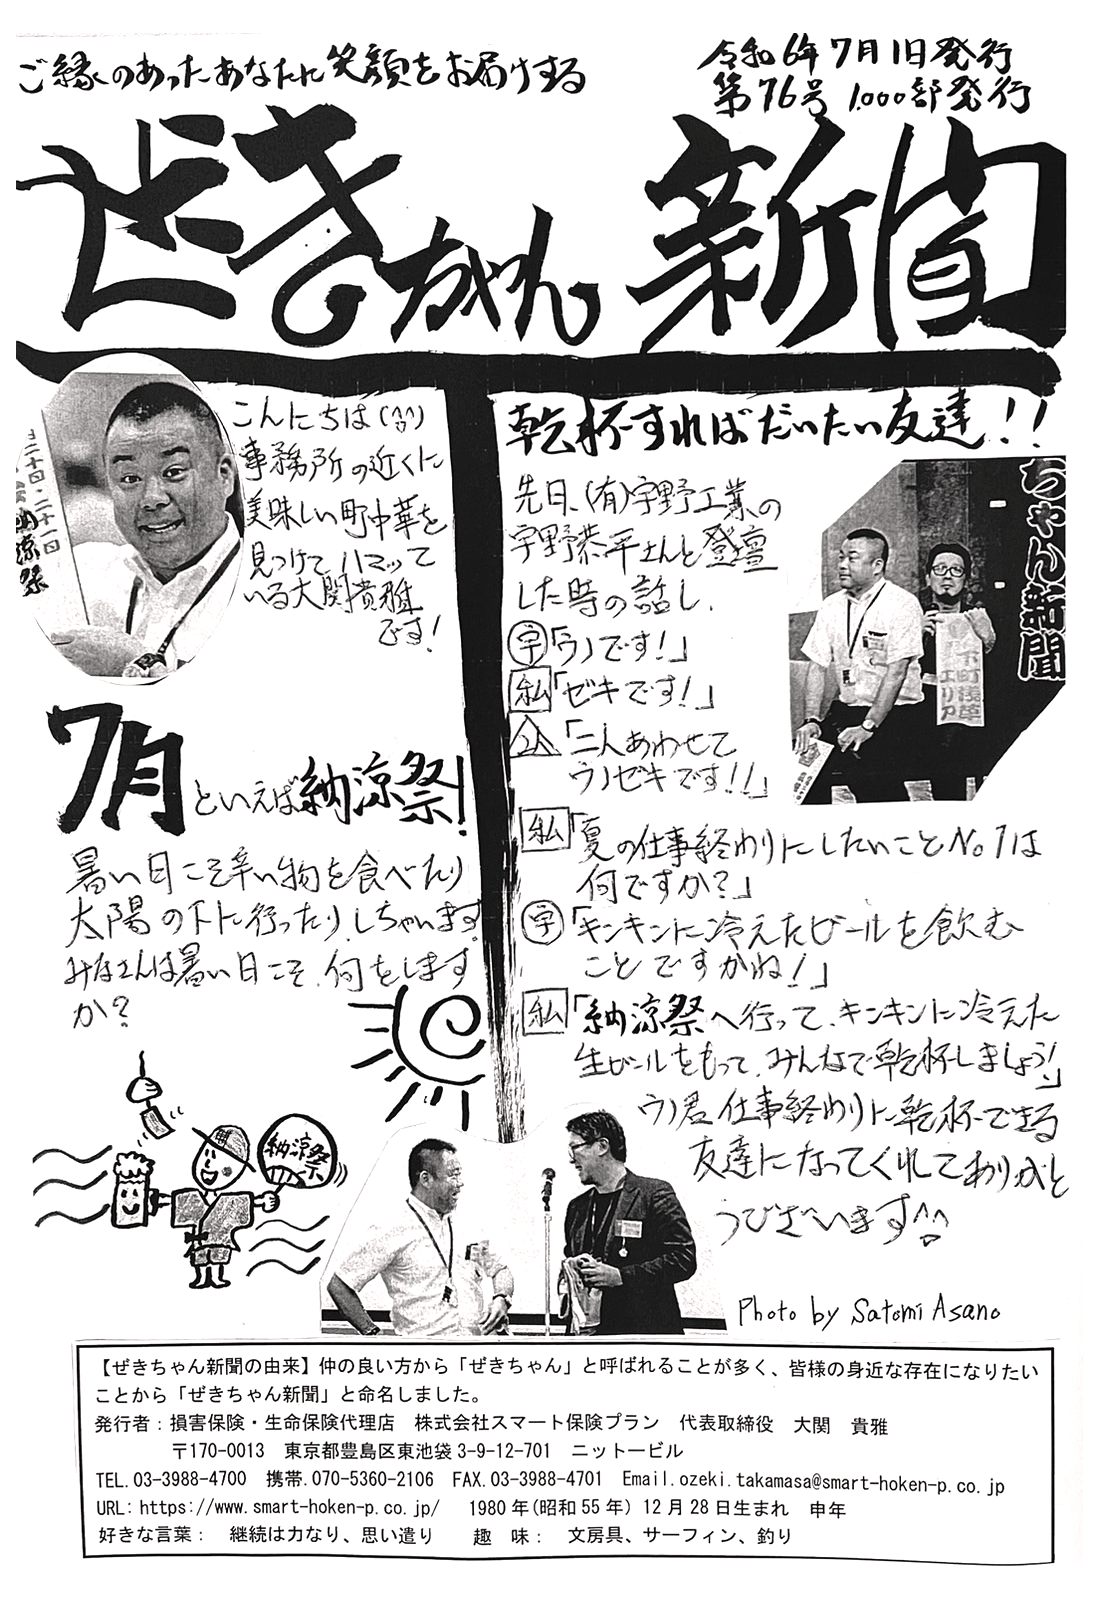 ご縁のあったあなたに笑顔をお届けする
令和6年7月1日発行
第76号 1,000部発行
ぜきちゃん新聞
こんにちは(^^)
事務所の近くに
美味しい町中華を
見つけてハマッて
いる大関貴雅
です!
日二十日・二十一日
納涼祭
7月といえば納涼祭!
暑い日こそ辛い物を食べたり
太陽の下に行ったりしちゃいます
みなさんは暑い日こそ、何をします
か?
納涼祭
乾杯すればだいたい友達!!
先日、(有)宇野工業の
宇野恭平さんと登壇
した時の話し、
宇「ウノです!」
私「ゼキです!」
2人「二人あわせて
ウノゼキです!!」
ちゃん新聞
下町浅草
エリア
私「夏の仕事終わりにしたいことNo.1は
何ですか?」
宇「キンキンに冷えたビールを飲む
ことですかね!」
私「納涼祭へ行って、キンキンに冷えた
生ビールをもって、みんなで乾杯しましょう!」
ウノ君仕事終わりに乾杯できる
友達になってくれてありがと
うございます^^
Photo by Satomi Asano
【ぜきちゃん新聞の由来】仲の良い方から「ぜきちゃん」と呼ばれることが多く、皆様の身近な存在になりたい
ことから「ぜきちゃん新聞」と命名しました。
発行者：損害保険・生命保険代理店 株式会社スマート保険プラン 代表取締役 大関 貴雅
〒170-0013 東京都豊島区東池袋3-9-12-701 ニットービル
TEL.03-3988-4700 携帯.070-5360-2106 FAX.03-3988-4701 Email.ozeki.takamasa@smart-hoken-p.co.jp
URL: https://www.smart-hoken-p.co.jp/ 1980年(昭和55年) 12月28日生まれ 申年
好きな言葉： 継続は力なり、思い遣り 趣 味： 文房具、サーフィン、釣り